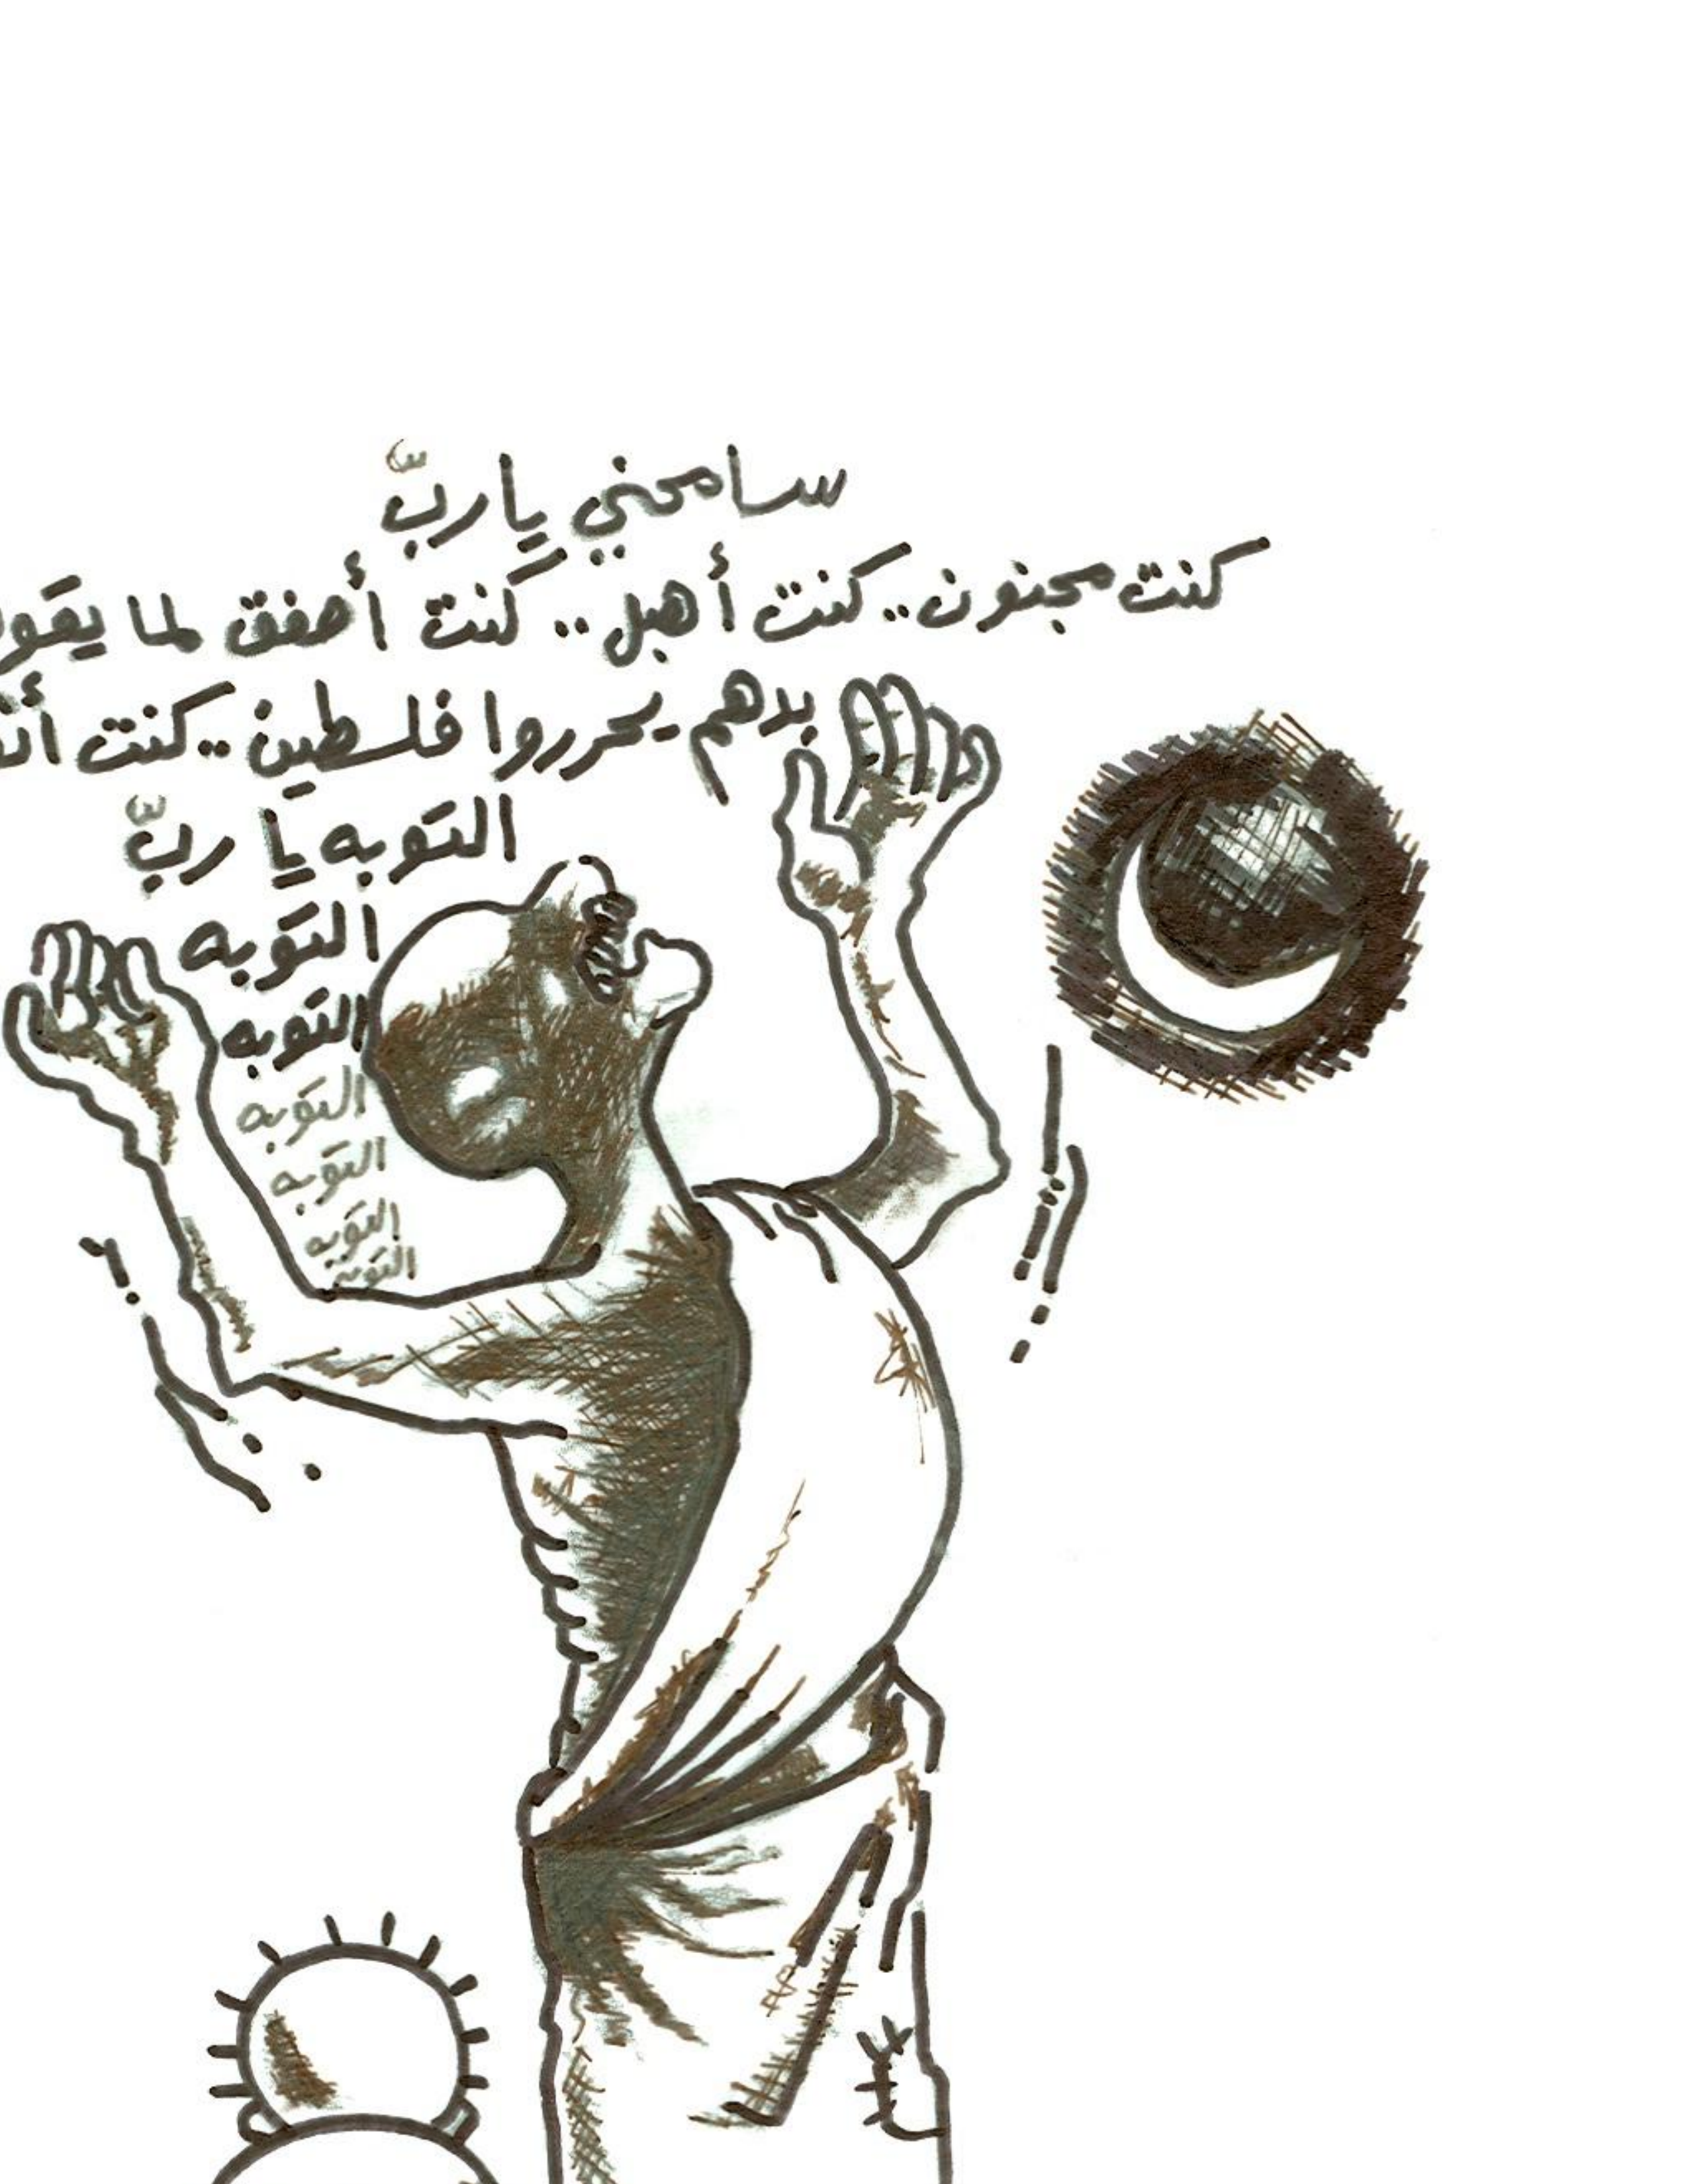 سامحني يا ربّ
كنت مجنون.. كنت أهبل.. كنت أصفق لما يقو
بدهم يحرروا فلسطين.. كنت
التوبه يا ربّ
التوبه
التوبه
التوبه
التوبه
التوبه
التوبه